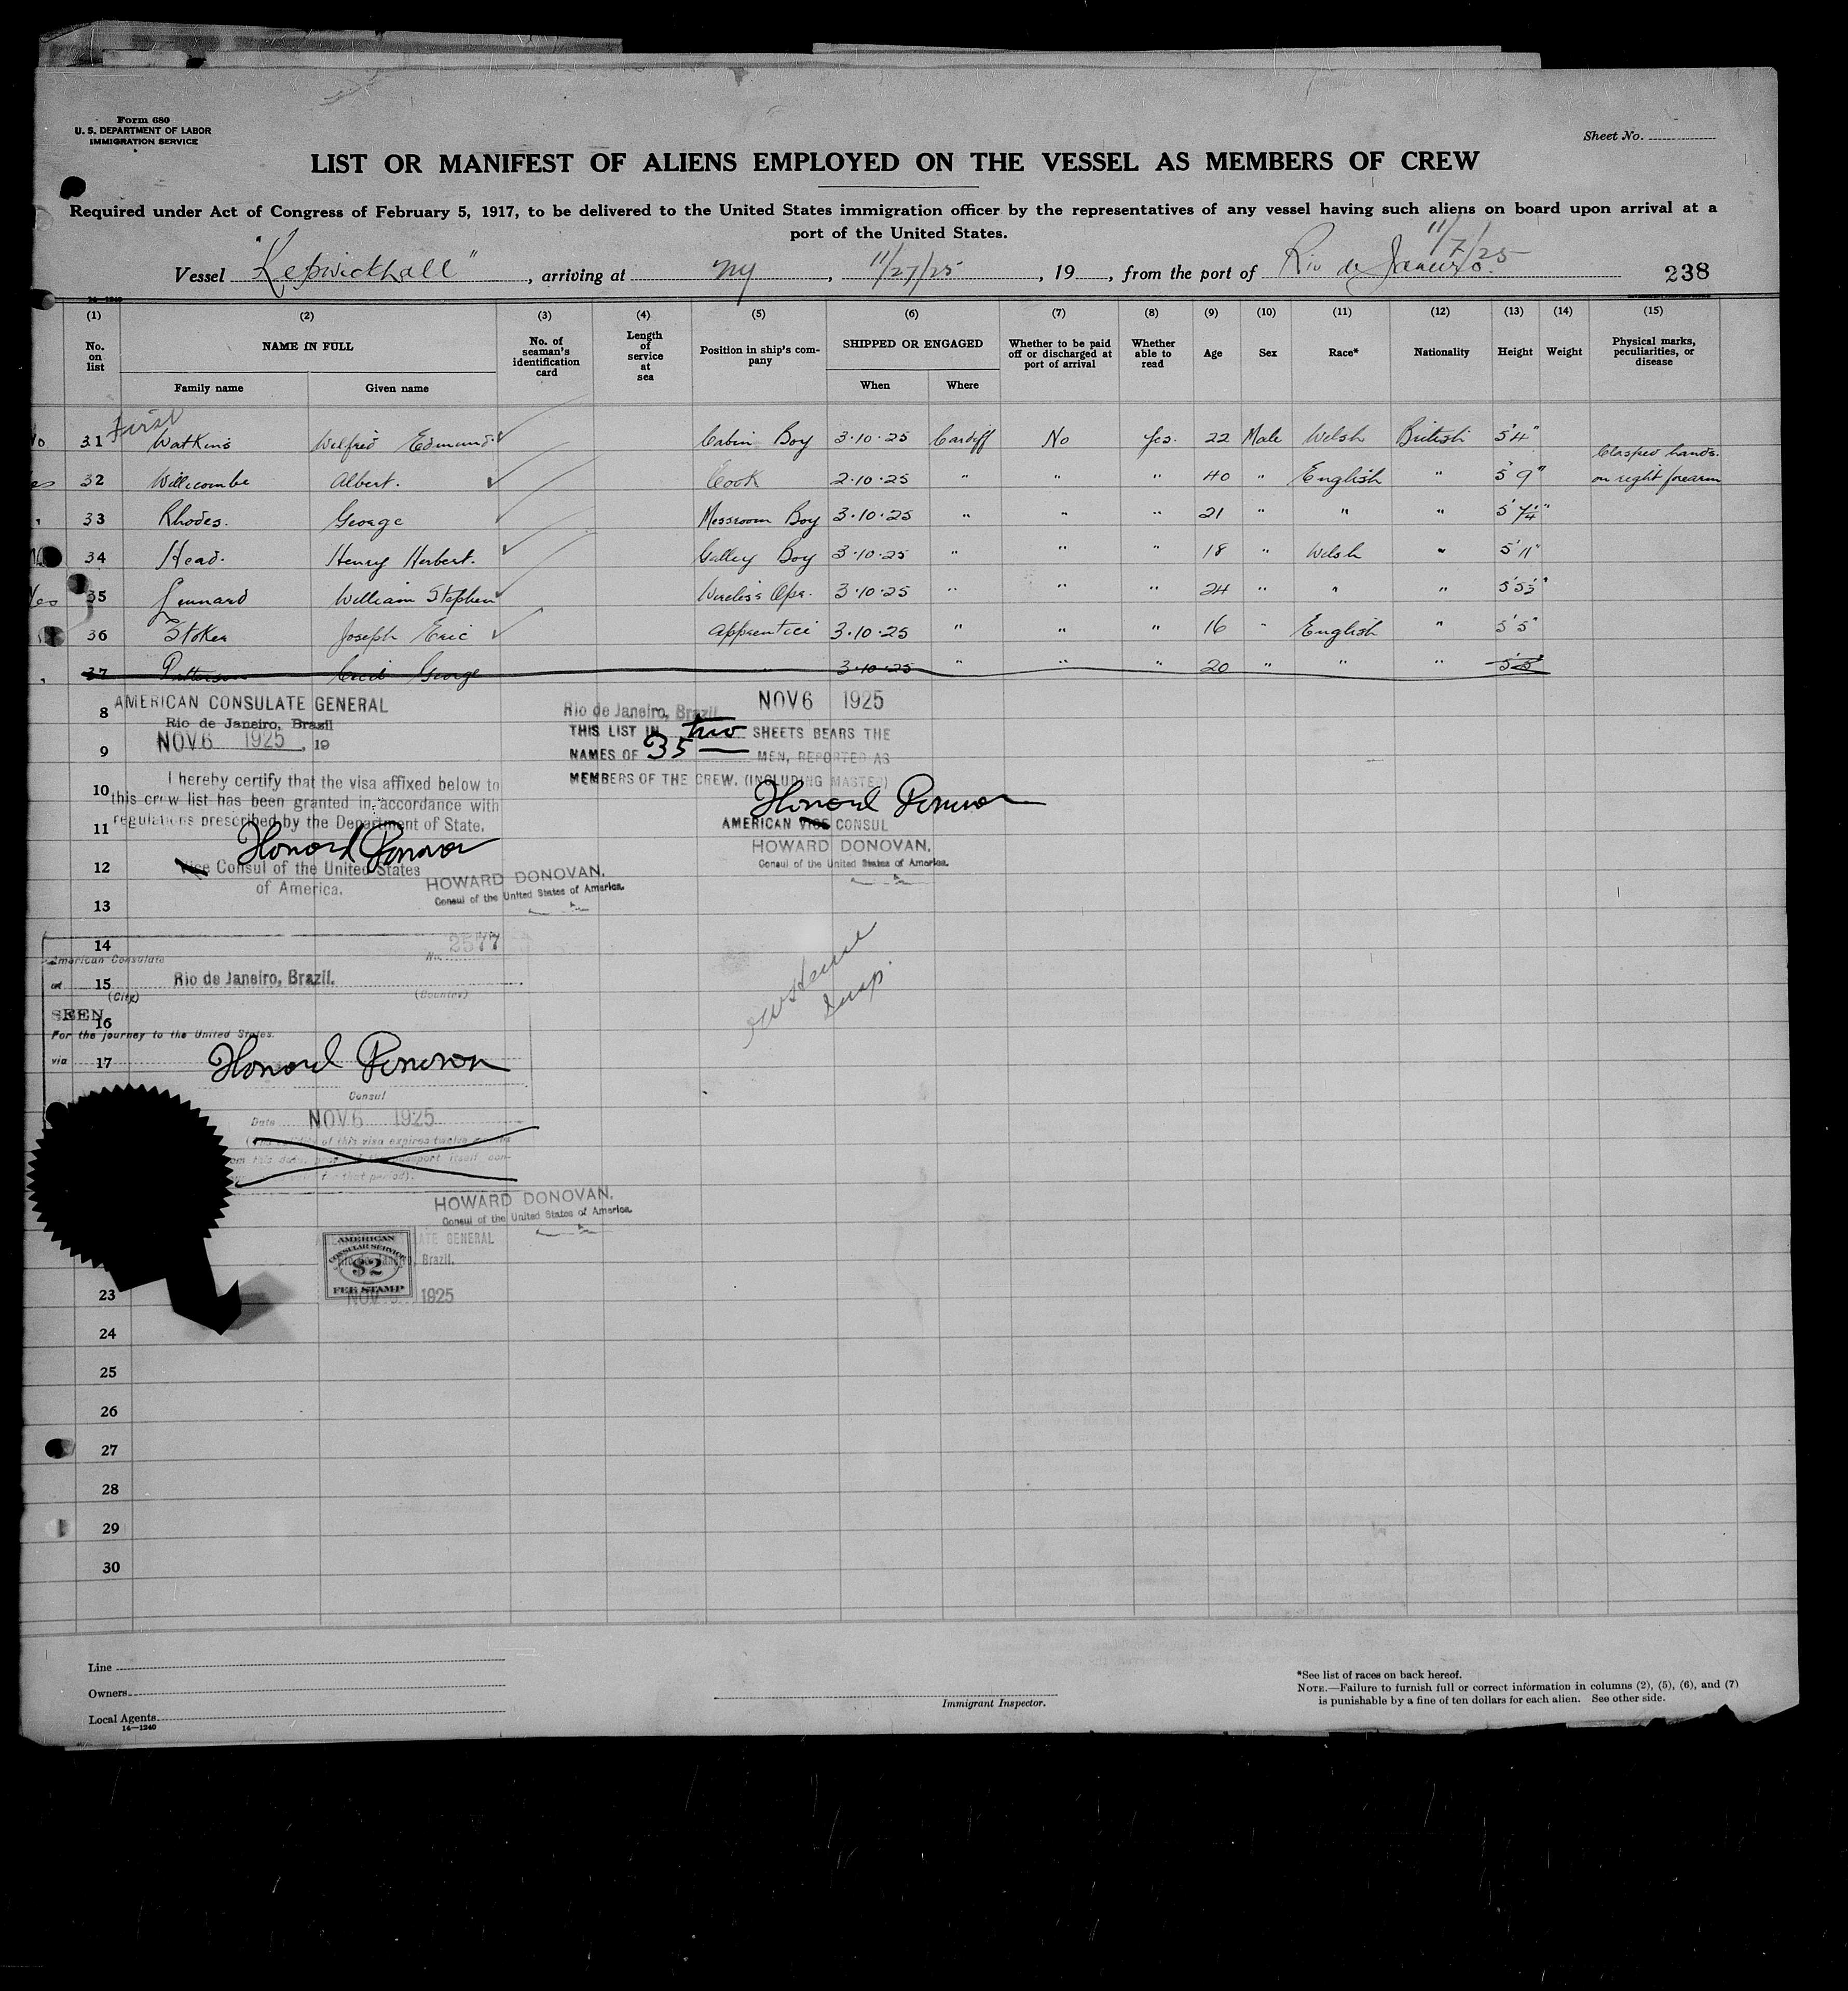 Form 680
U. S. DEPARTMENT OF LABOR
IMMIGRATION SERVICE
Sheet No.
LIST OR MANIFEST OF ALIENS EMPLOYED ON THE VESSEL AS MEMBERS OF CREW
Required under Act of Congress of February 5, 1917, to be delivered to the United States immigration officer by the representatives of any vessel having such aliens on board upon arrival at a
port of the United States.
11/7/25
Vessel "Kepwickhall", arriving at NY, 11/27/25, 19 , from the port of Rio de Janeiro. 238
14—1240
(1) (2) (3) (4) (5) (6) (7) (8) (9) (10) (11) (12) (13) (14) (15)
No. on list NAME IN FULL No. of seaman's identification card Length of service at sea Position in ship's company SHIPPED OR ENGAGED Whether to be paid off or discharged at port of arrival Whether able to read Age Sex Race* Nationality Height Weight Physical marks, peculiarities, or disease
Family name Given name When Where
First
31 Watkins Wilfrid Edmund. Cabin Boy 3·10·25 Cardiff No Yes. 22 Male Welsh British 5'4"
Clasped hands.
32 Willicombe Albert. Cook 2·10·25 " " " 40 " English " 5'9" on right forearm
33 Rhodes. George Messroom Boy 3·10·25 " " " 21 " " " 5'7¼"
34 Head. Henry Herbert. Galley Boy 3·10·25 " " " 18 " Welsh " 5'11"
Yes 35 William Stephen Wireless Opr. 3·10·25 " " " 24 " " "
36 Stoker Joseph Eric Apprentice 3·10·25 " " " 16 " English " 5'5"
37 Patterson Cecil George 3·10·25 " " " 20 " " " 5'5"
8 AMERICAN CONSULATE GENERAL
Rio de Janeiro, Brazil
NOV 6 1925, 19
9
I hereby certify that the visa affixed below to
10 this crew list has been granted in accordance with
regulations prescribed by the Department of State.
11
Howard Donovan
12 Vice Consul of the United States
of America.
HOWARD DONOVAN.
Consul of the United States of America.
13
Rio de Janeiro, Brazil NOV 6 1925
THIS LIST IN two SHEETS BEARS THE
NAMES OF 35 MEN, REPORTED AS
MEMBERS OF THE CREW. (INCLUDING MASTER)
Howard Donovan
AMERICAN VICE CONSUL
HOWARD DONOVAN.
Consul of the United States of America.
14 No. 2577
American Consulate
at 15 Rio de Janeiro, Brazil.
(City) (Country)
SEEN
16
For the journey to the United States.
via 17
Howard Donovan
Consul
Date NOV 6 1925
of this visa expires twelve
for that period).
HOWARD DONOVAN.
Consul of the United States of America.
AMERICAN CONSULAR SERVICE
$2
FEE STAMP
GENERAL
Brazil.
NOV 1925
23
24
25
26
27
28
29
30
Line
Owners
Local Agents
14—1240
Immigrant Inspector.
*See list of races on back hereof.
NOTE.—Failure to furnish full or correct information in columns (2), (5), (6), and (7)
is punishable by a fine of ten dollars for each alien. See other side.